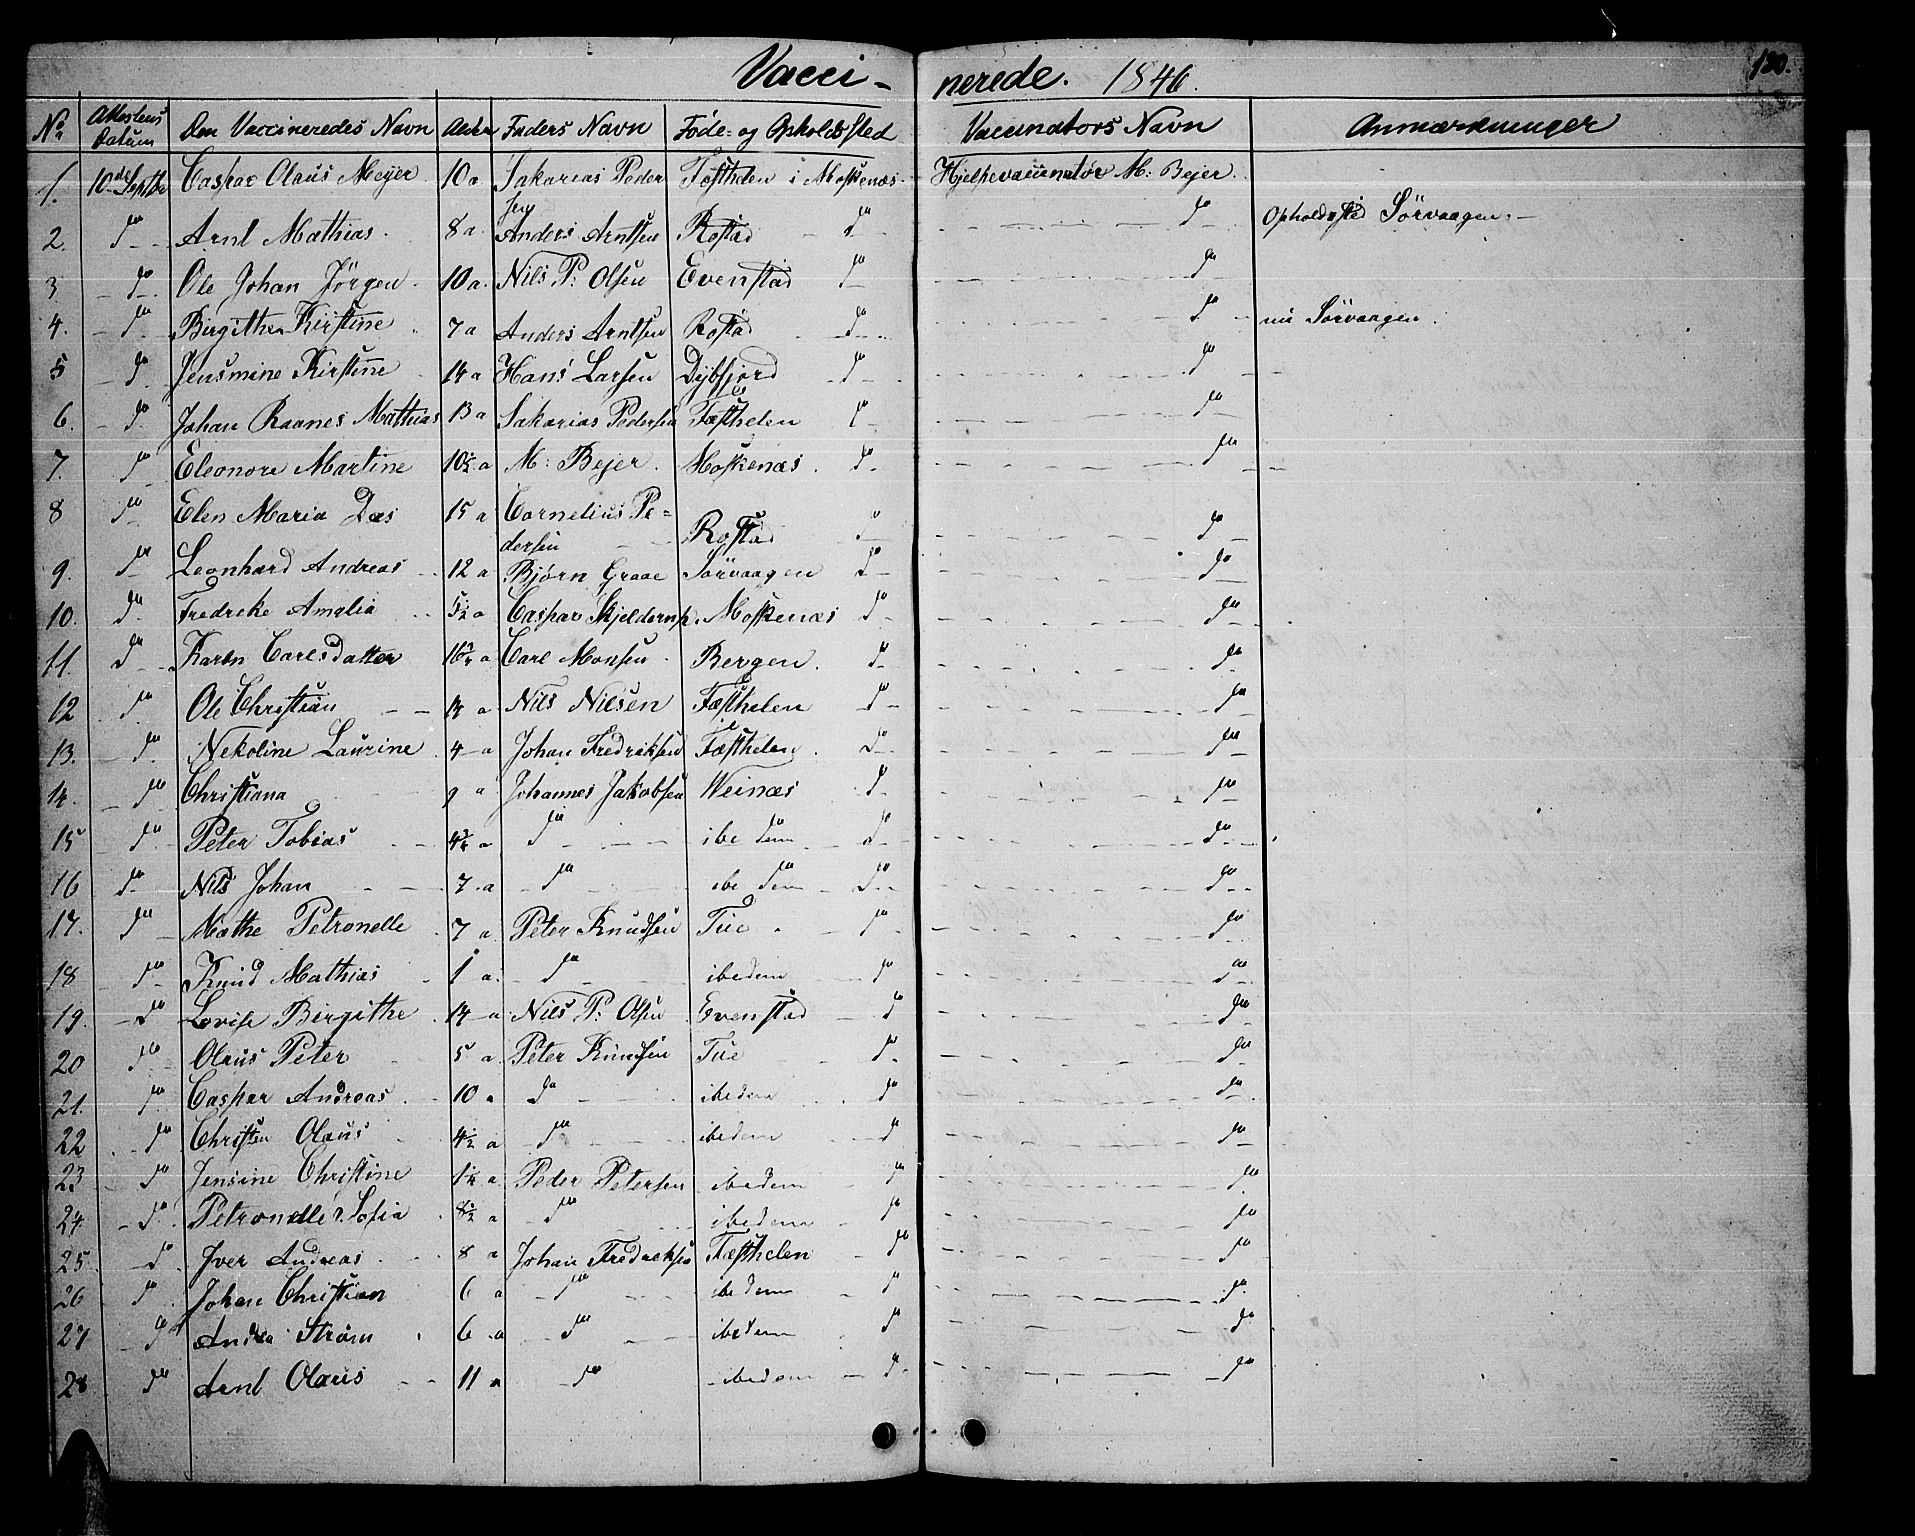 Vacci- nerede. 1846. 130.
No Attestens Datum Den Vaccineredes Navn Alder Faders Navn Føde- og Opholdssted Vaccinators Navn Anmærkninger
1. 10de Septbr Caspar Olaus Meyer 10 a. Sakarias Peder Fæsthelen i Moskenæs Hjelpevaccinatør M: Bejer.
sen
2. do Arnt Mathias 8 a. Anders Arntsen Rostad do do Opholdssted Sörvaagen
3 do Ole Johan Jörgen 10 a. Nils P: Olsen Evenstad do do
4. do Birgithe Kirstine 7 a Anders Arntsen Rostad do do nu Sörvaagen
5 do Jensmine Kirstine 14 a Hans Larsen Dybfjord do do
6. do Johan Raanes Mathias 13 a Sakarias Pedersen Fæsthelen do do
7. do Eleonore Martine 10½ a M: Bejer. Moskenæs do do
8 do Elen Maria Dæs 15 a Cornelius Pe=
dersen Rostad do do
9. do Leonhard Andreas 12 a Bjørn Graae Sörvaagen do do
10. do Fredreke Amalia 5½ a Caspar Skjeldernp. Moskenæs do do
11. do Karen Carlsdatter 16¾ a Carl Monsen Bergen. do do
12 do Ole Christian 14 a Nils Nilsen Fæsthelen do do
13. do Nekoline Laurine 4 a Johan Fredriksen Fæsthelen do do
14. do Christiana 9 a Johannes Jakobsen Weinæs do do
15 do Peter Tobias 4¾ a do ibedem do do
16 do Nils Johan 7. a do ibedem do do
17. do Mathe Petronelle 7 a Peter Knudsen Tue do do
18 do Knud Mathias 1 a. do ibedem do do
19. do Lovise Birgithe 14 a Nils P: Olsen Evenstad do do
20 do Olaus Peter 5 a Peter Knudsen Tue do do
21. do Caspar Andreas 10 a do ibedem do do
22 do Christen Olaus 4½ a do ibedem do do
23 do Jensine Christine 1¼ a Peder Petersen ibedem do do
24. do Petronelle Sofia 8½ a do ibedem do do
25. do Iver Andreas 8 a Johan Fredreksen Fæsthelen do do
26 do Johan Christian 6 a do ibedem do do
27 do Andrea Strøm 6 a do ibedem do do
28 do Arnt Olaus 11 a do ibedem do do